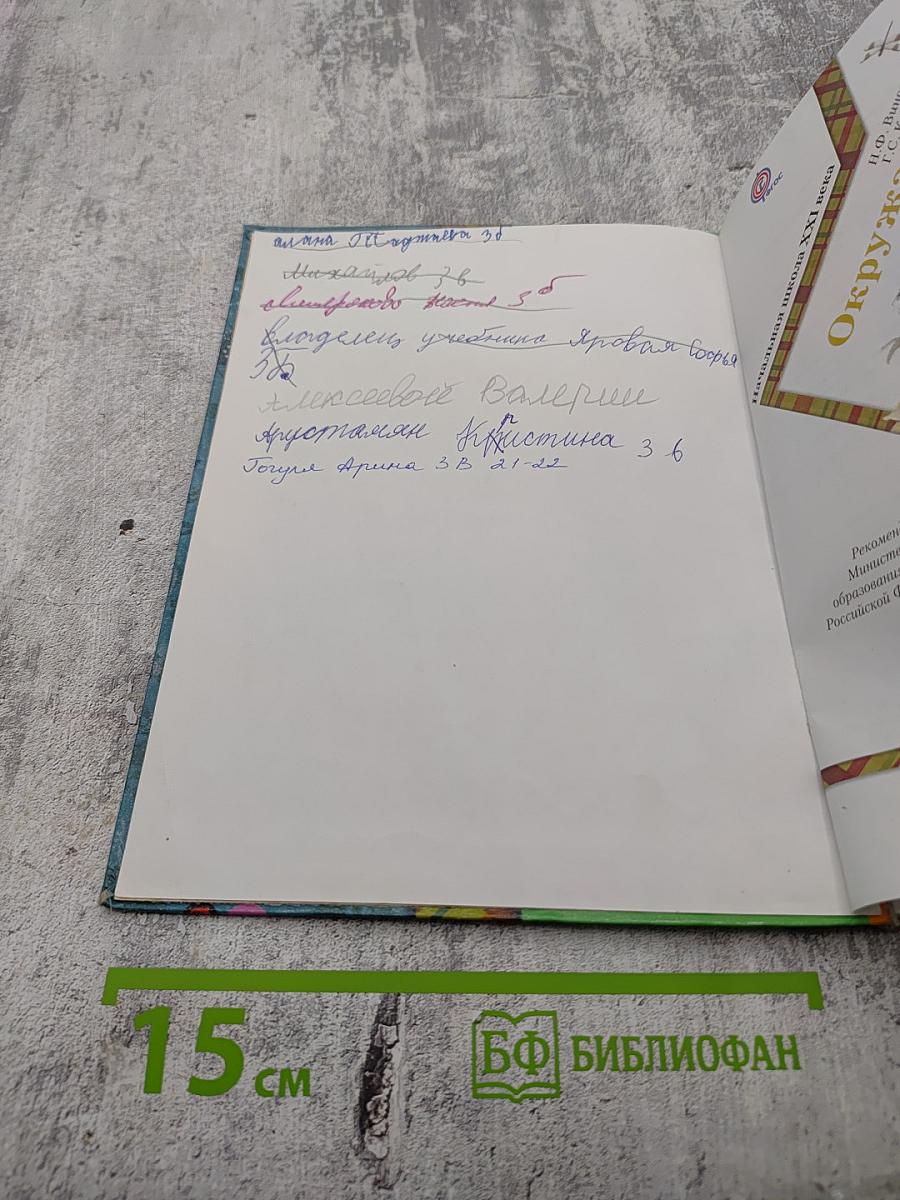 алана 3б
Михайлов 3в
Костя 3б
Владелец учебника Яровая Софья
3б
Алексеевой Валерии
Арустамян Кристина 3 в
Гогуля Арина 3 В 21-22
ФГОС
Начальная школа XXI века
Н.Ф. Вин
Г.С. К
Окружа
Рекомен
Министе
образования
Российской Ф
15 см
БФ БИБЛИОФАН